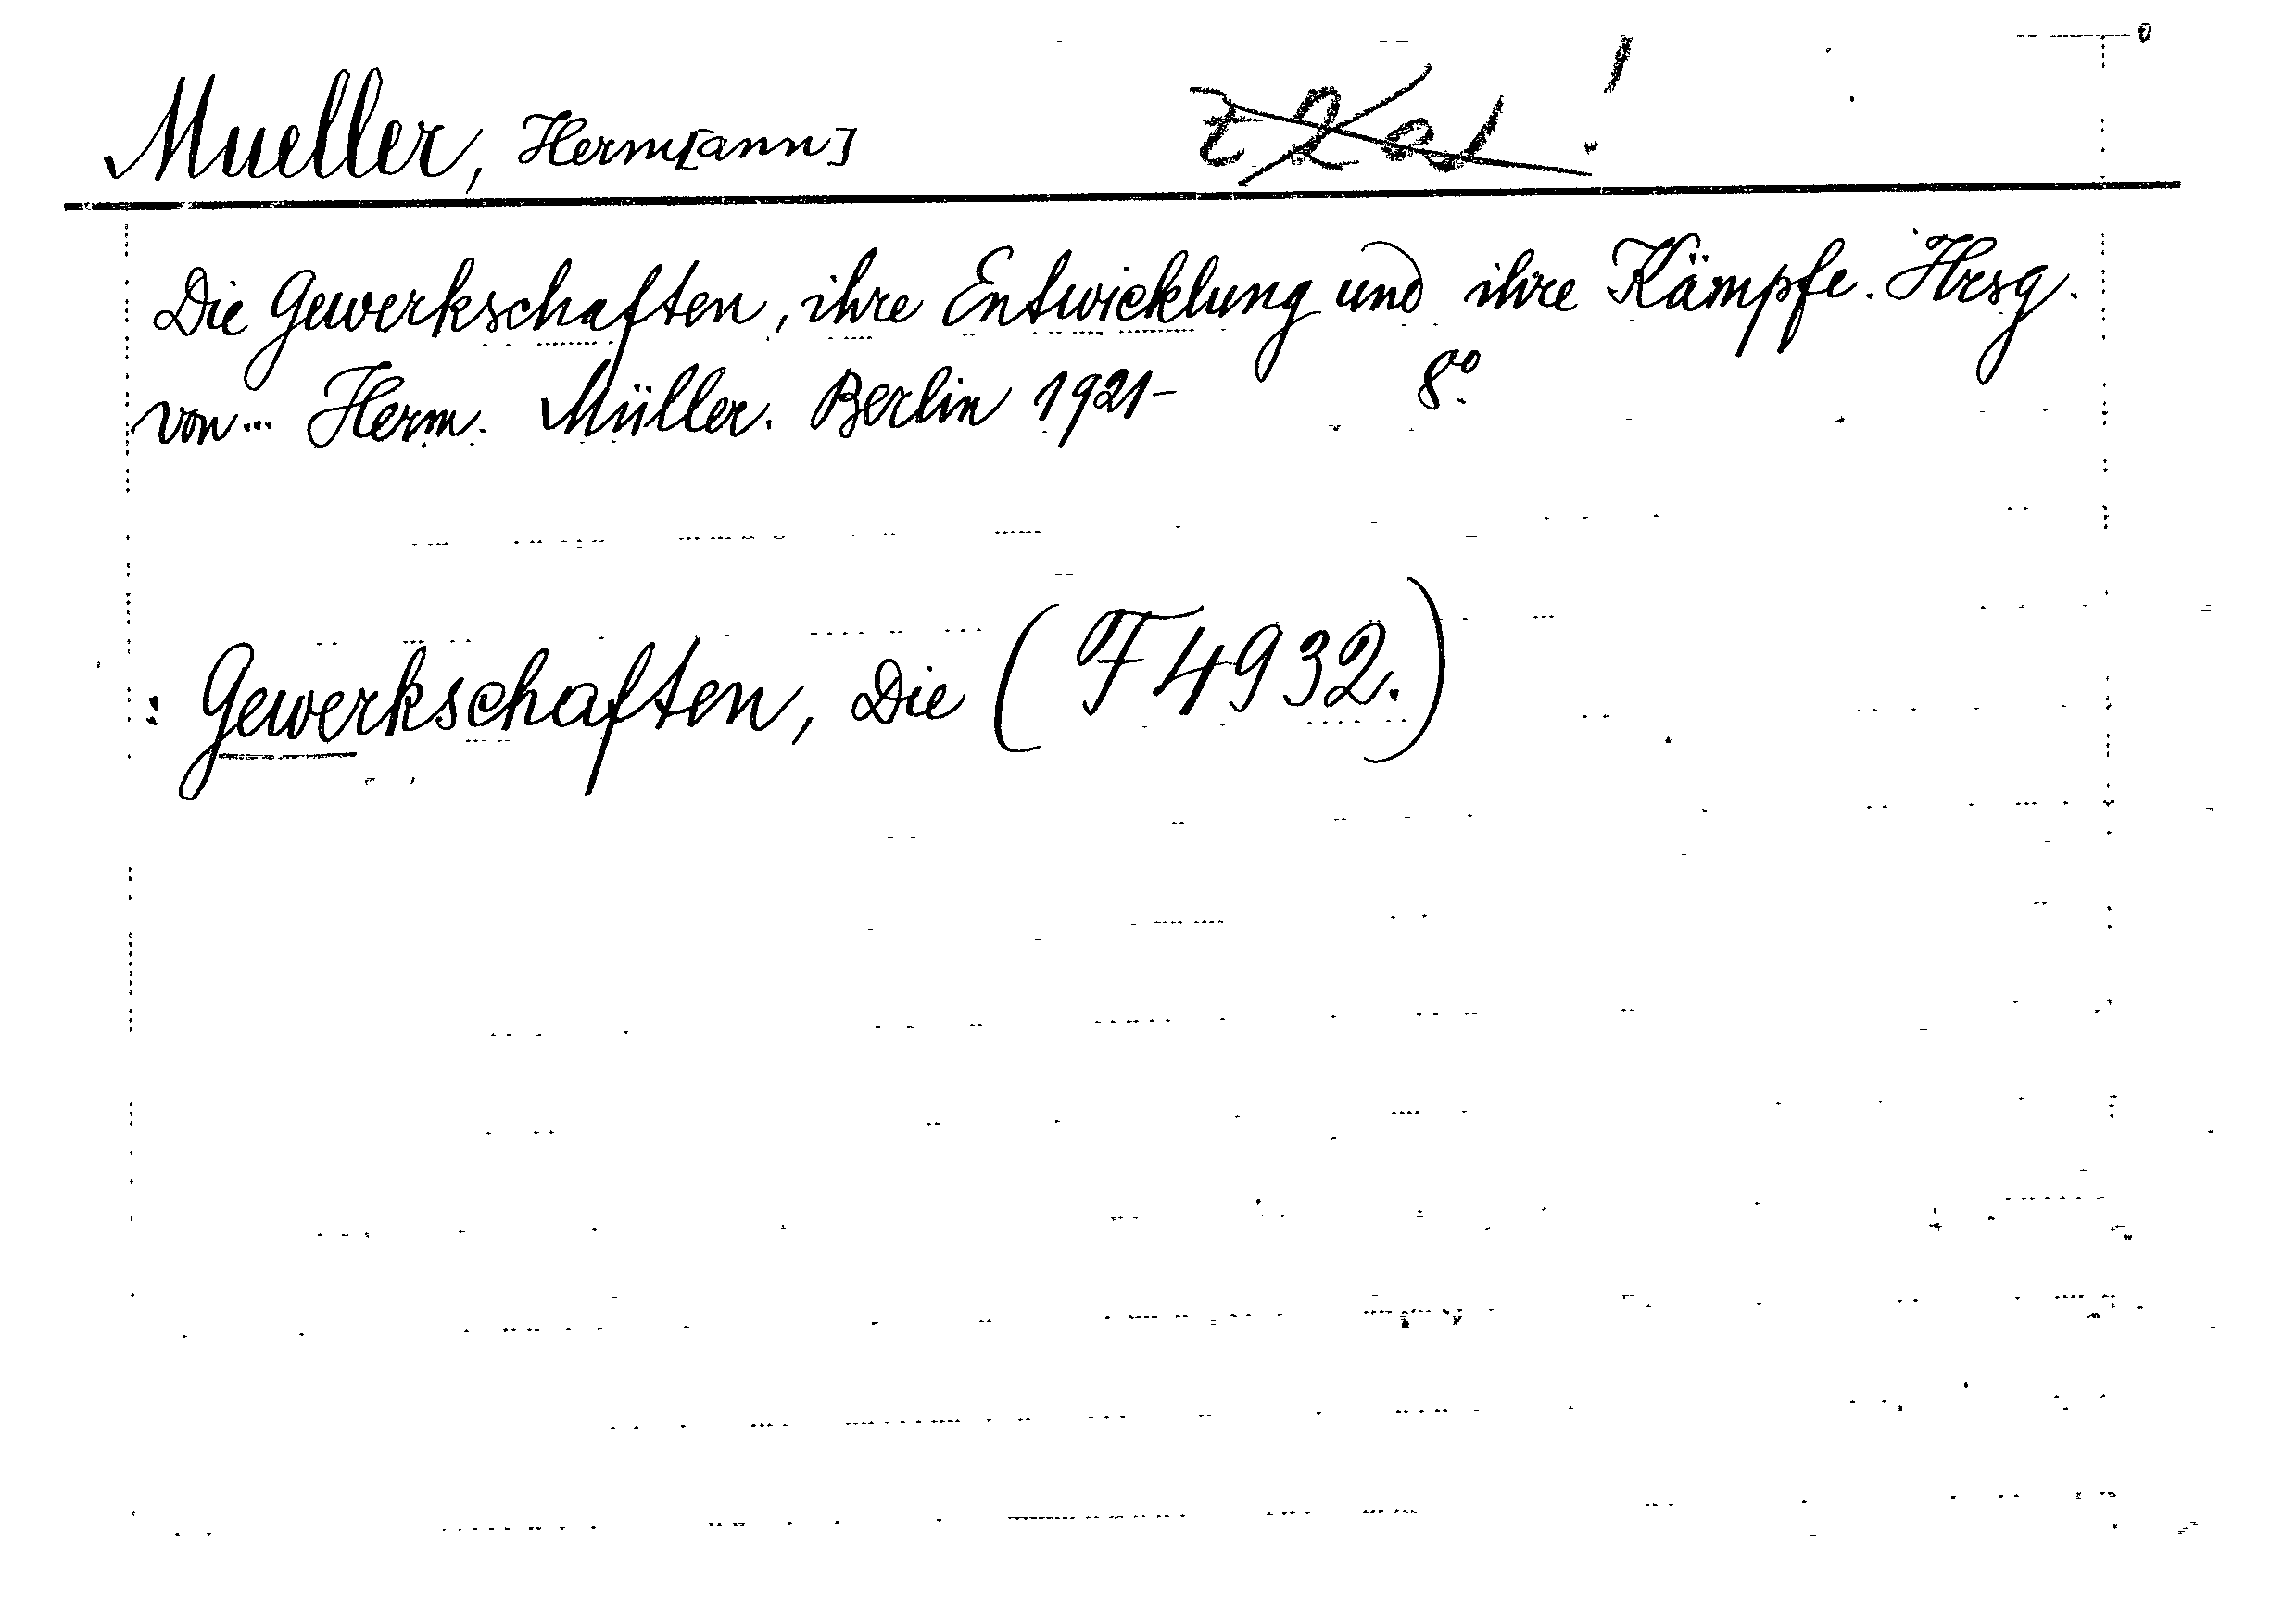 Mueller, Herm[ann]
Die Gewerkschaften, ihre Entwicklung und ihre Kämpfe. Hrsg.
von... Herm. Müller. Berlin 1921- 8°.
: Gewerkschaften, Die (F 4932.)